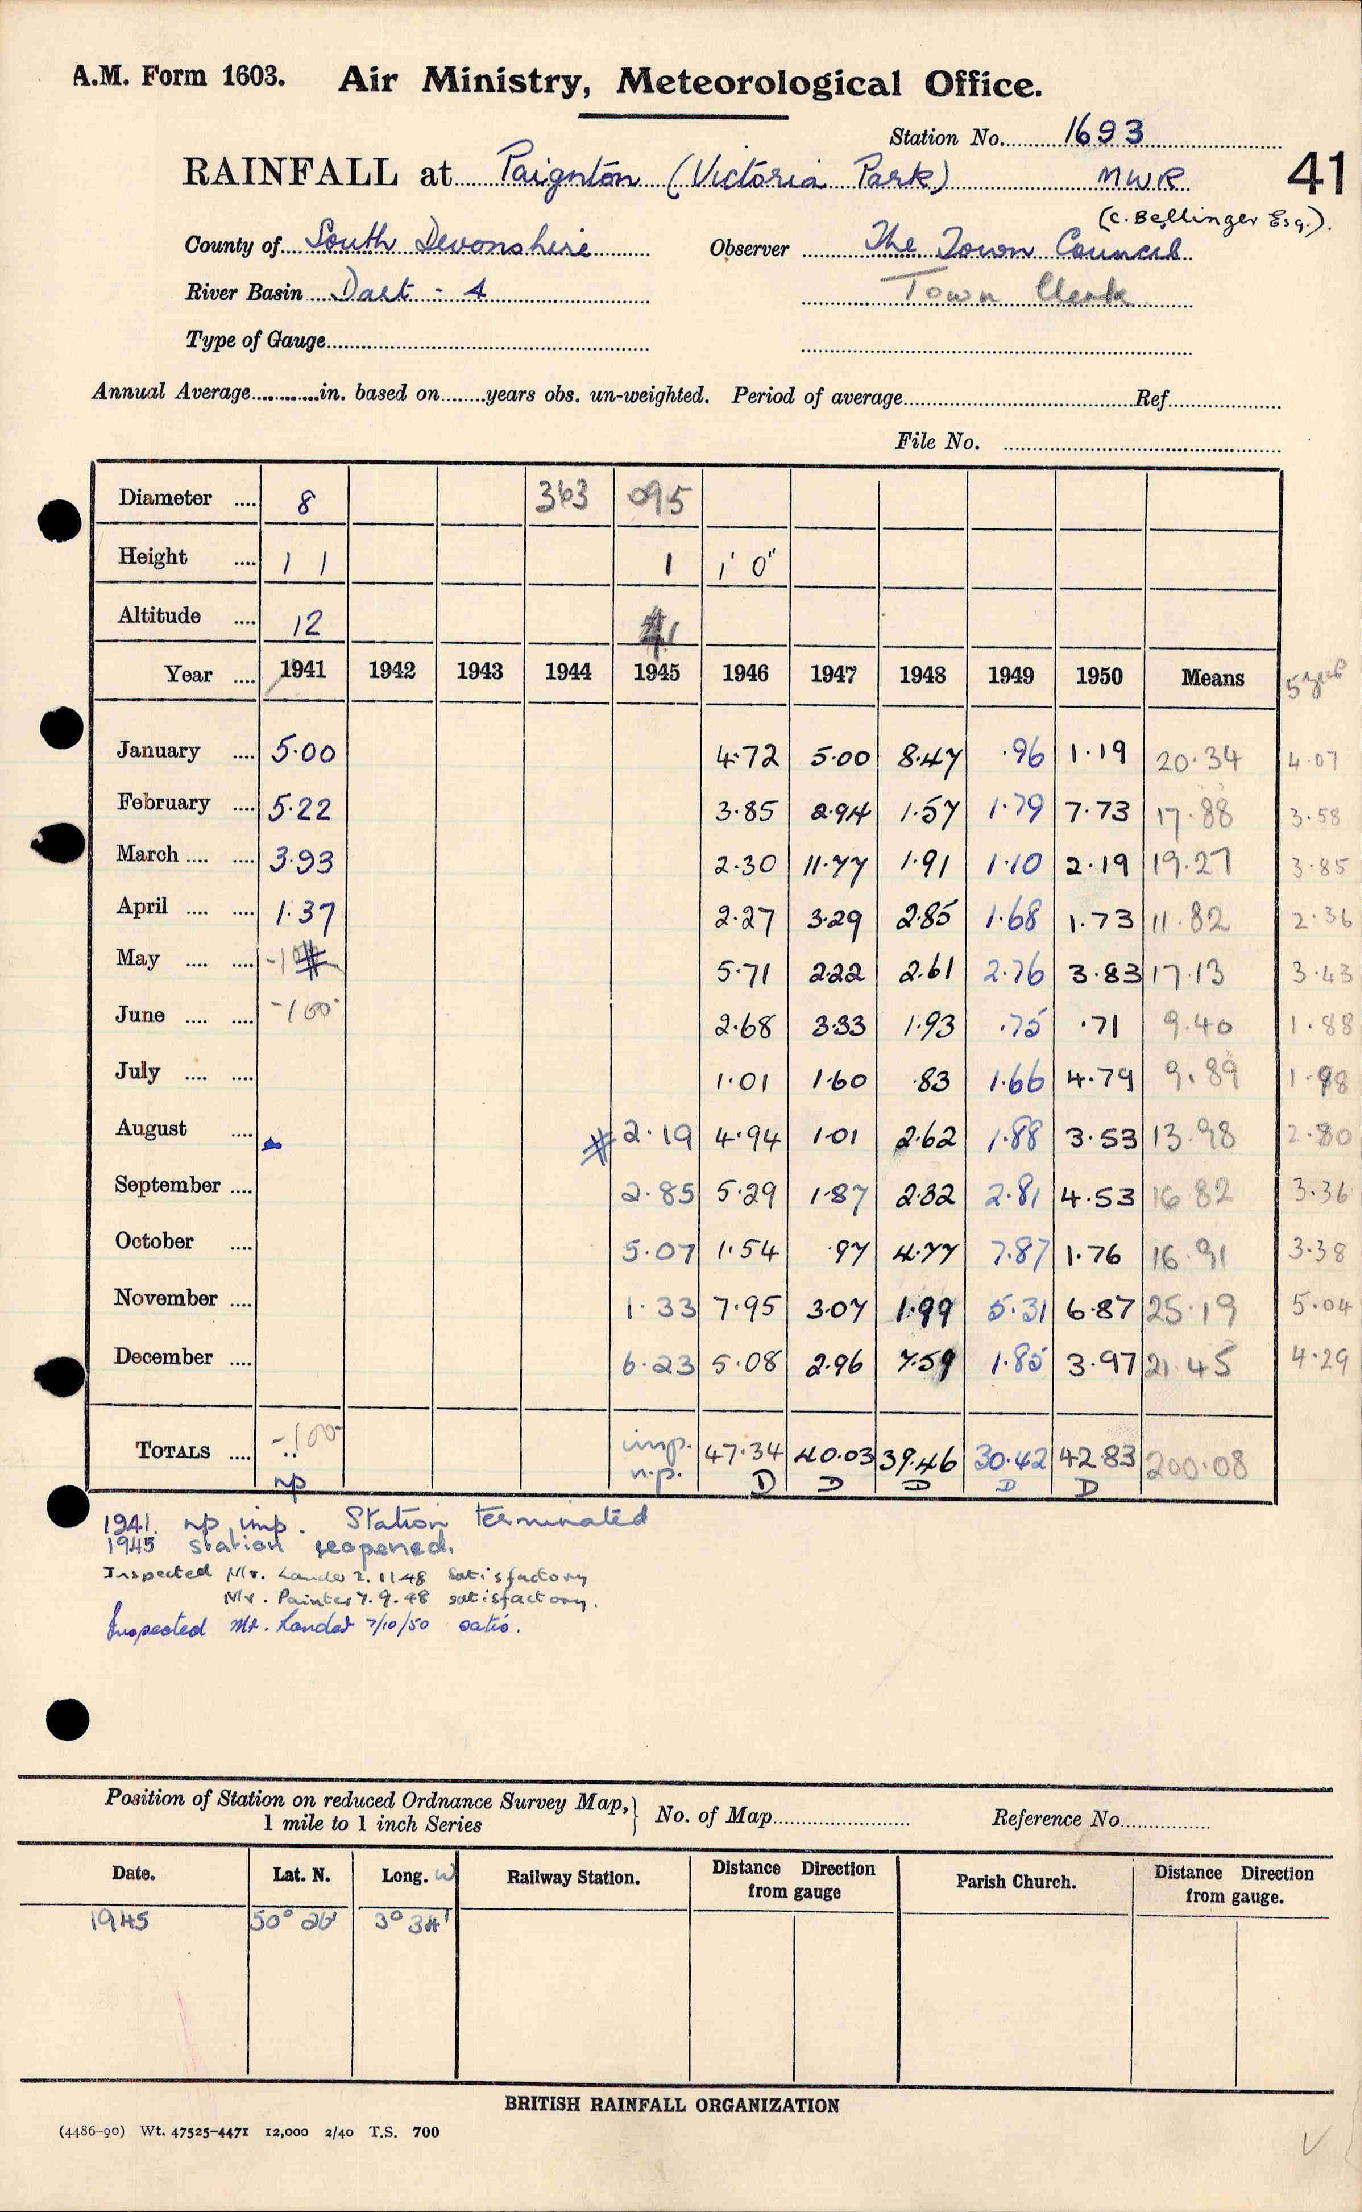 A.M. Form 1603. Air Ministry, Meteorological Office.
Station No. 1693
RAINFALL at Paignton (Victoria Park) MWR 41
(C. Bellinger Esq.).
County of South Devonshire Observer The Town Council
River Basin Dart - 4 Town Clerk
Type of Gauge
Annual Average in. based on years obs. un-weighted. Period of average Ref
File No.
Diameter 8 363 095
Height 1 1 1 1' 0"
Altitude 12
Year 1941 1942 1943 1944 1945 1946 1947 1948 1949 1950 Means 5 yrs
January 5.00 4.72 5.00 8.47 .96 1.19 20.34 4.07
February 5.22 3.85 2.94 1.57 1.79 7.73 17.88 3.58
March 3.93 2.30 11.77 1.91 1.10 2.19 19.27 3.85
April 1.37 2.27 3.29 2.85 1.68 1.73 11.82 2.36
May 5.71 2.22 2.61 2.76 3.83 17.13 3.43
June -100 2.68 3.33 1.93 .75 .71 9.40 1.88
July 1.01 1.60 .83 1.66 4.79 9.89 1.98
August # 2.19 4.94 1.01 2.62 1.88 3.53 13.98 2.80
September 2.85 5.29 1.87 2.32 2.81 4.53 16.82 3.36
October 5.07 1.54 .97 4.77 7.87 1.76 16.91 3.38
November 1.33 7.95 3.07 1.99 5.31 6.87 25.19 5.04
December 6.23 5.08 2.96 7.59 1.85 3.97 21.45 4.29
TOTALS -100 imp. 47.34 40.03 39.46 30.42 42.83 200.08
np n.p. D D D D D
1941. np imp. Station terminated
1945 station reopened.
Inspected Mr. Lander 2.11.48 satisfactory
Mr. Painter 7.9.48 satisfactory.
Inspected Mr. Lander 7/10/50 satis.
Position of Station on reduced Ordnance Survey Map, 1 mile to 1 inch Series } No. of Map Reference No.
Date. Lat. N. Long. W Railway Station. Distance Direction from gauge Parish Church. Distance Direction from gauge.
1945 50° 26' 3° 34'
BRITISH RAINFALL ORGANIZATION
(4486-90) Wt. 47525-4471 12,000 2/40 T.S. 700